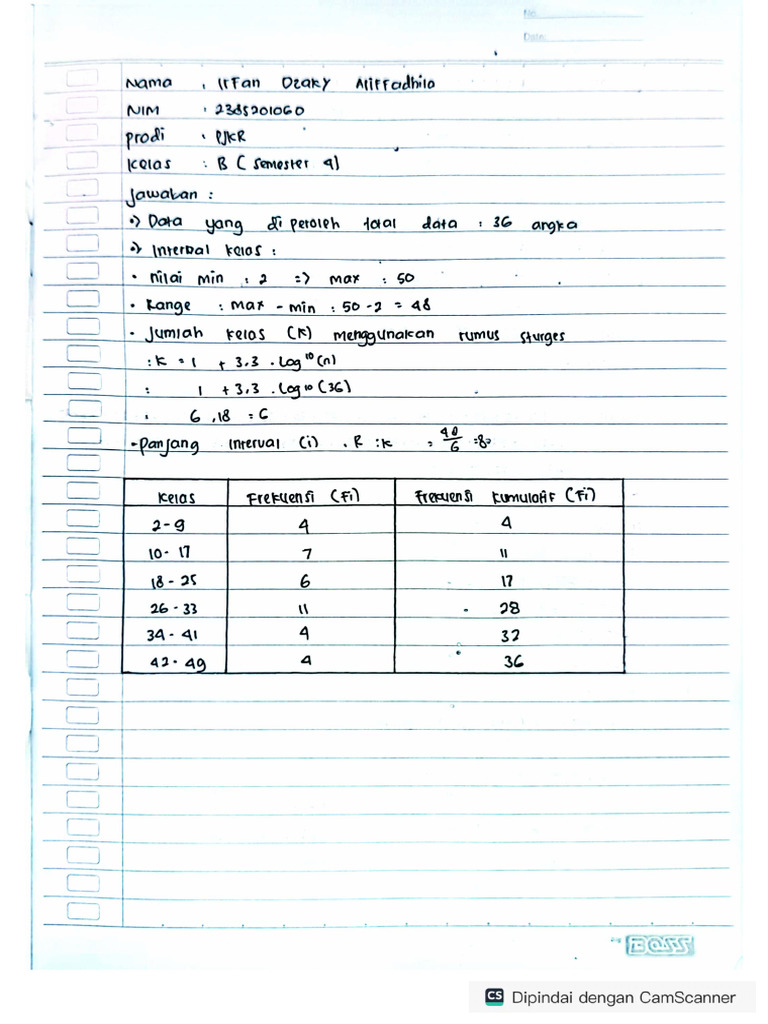 No.
Date:
Nama : Irfan Dzaky Aliffadhila
NIM : 2385201060
prodi : PJKR
Kelas : B ( Semester 4)
Jawaban :
•) Data yang di peroleh total data : 36 angka
•) Interval kelas :
• nilai min : 2 => max : 50
• Range : max - min : 50 - 2 = 48
• Jumlah kelas (k) menggunakan rumus sturges
: k = 1 + 3.3 . Log¹⁰ (n)
: 1 + 3,3 . Log10 (36)
: 6,18 = 6
- panjang interval (i) . R : k = 48/6 = 8
Kelas Frekuensi (Fi) Frekuensi Kumulatif (Fi)
2-9 4 4
10 - 17 7 11
18 - 25 6 17
26 - 33 11 28
34 - 41 4 32
42 - 49 4 36
BOSS
CS Dipindai dengan CamScanner